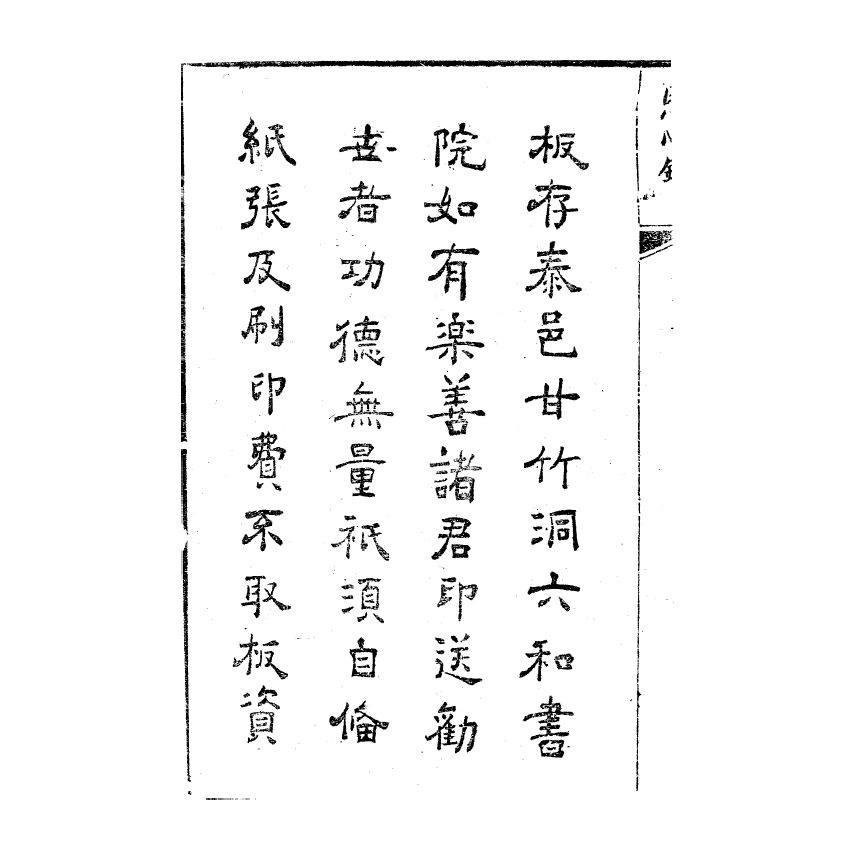 板存泰邑甘竹洞六和書
院如有楽善諸君印送勸
世者功德無量祇須自俻
紙張及刷印費不取板資